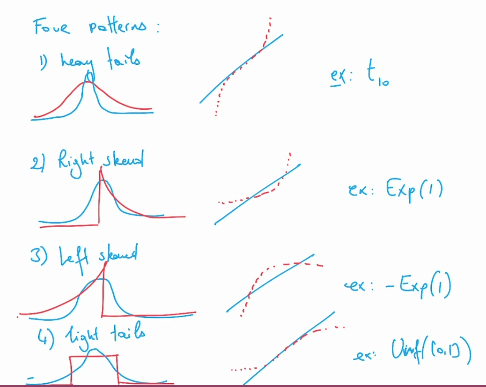 Four patterns :
1) heavy tails
ex: t₁₀
2) Right skewed
ex: Exp(1)
3) Left skewed
ex: -Exp(1)
4) light tails
ex: Unif([0,1])